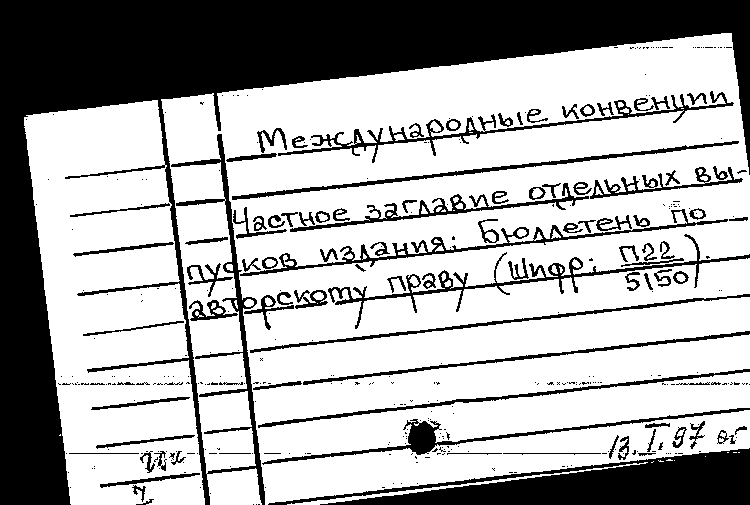 Международные конвенции
Частное заглавие отдельных вы-
пусков издания: Бюллетень по
авторскому праву (Шифр: П22
5150).
13.I.97